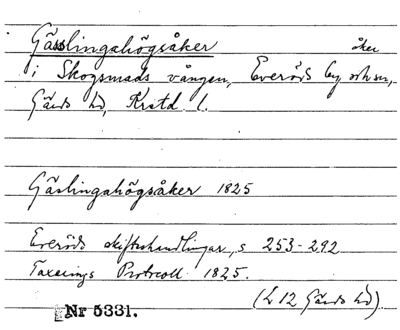 Gässlingahögsåker åker
i Skogsmads vången, Everöds by och sn,
Gärds hd, Krstd l.
Gäslingahögsåker 1825
Everöds skifteshandlingar, s 253-292
Taxerings Protocoll 1825.
(L 12 Gärds hd)
Nr 5331.